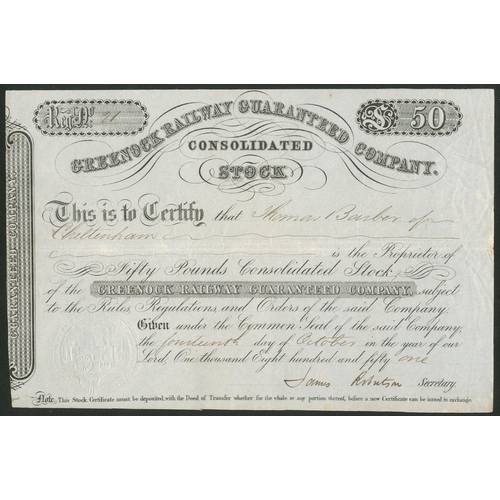 Reg. No.
£ 50
GREENOCK RAILWAY GUARANTEED COMPANY.
CONSOLIDATED
STOCK
This is to Certify that Thomas Barber of
Cheltenham
is the Proprietor of
Fifty Pounds Consolidated Stock,
of the GREENOCK RAILWAY GUARANTEED COMPANY, subject
to the Rules, Regulations, and Orders of the said Company;
Given under the Common Seal of the said Company,
the fourteenth day of October in the year of our
Lord, One thousand Eight hundred and fifty one
James Robertson Secretary.
Note, This Stock Certificate must be deposited, with the Deed of Transfer whether for the whole or any portion thereof, before a new Certificate can be issued in exchange.
GUARANTEED COMPANY.